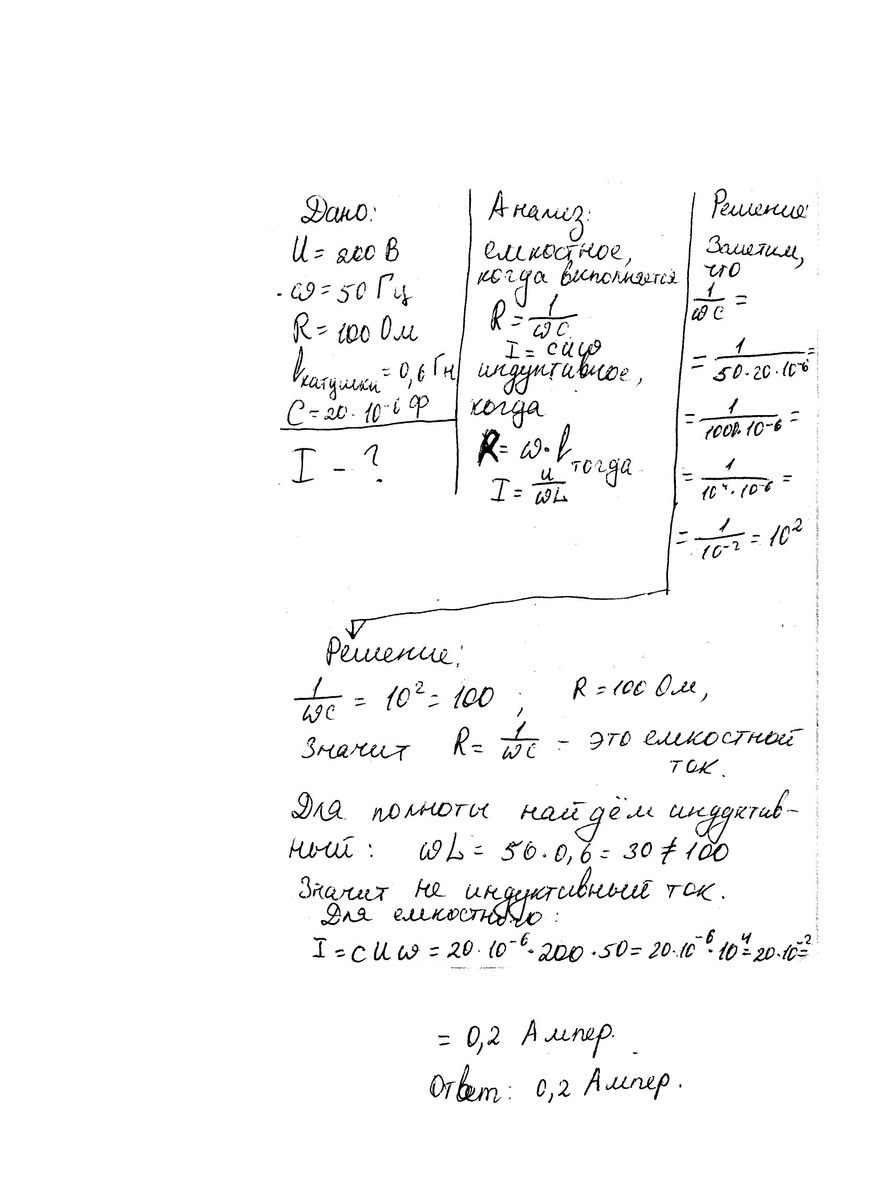 Дано:
U = 200 В
ω = 50 Гц
R = 100 Ом
L катушки = 0,6 Гн
C = 20 · 10⁻⁶ Ф
I - ?
Анализ:
емкостное,
когда выполняется
R = 1/ωC
I = CUω
индуктивное,
когда
R = ω · L
тогда
I = U/ωL
Решение:
Заметим,
что
1/ωC =
= 1/50·20·10⁻⁶ =
= 1/1000·10⁻⁶ =
= 1/10⁴·10⁻⁶ =
= 1/10⁻² = 10²
Решение:
1/ωC = 10² = 100 ; R = 100 Ом,
Значит R = 1/ωC - это емкостный
ток.
Для полноты найдём индуктив-
ный: ωL = 50·0,6 = 30 ≠ 100
Значит не индуктивный ток.
Для емкостного:
I = CUω = 20·10⁻⁶·200·50 = 20·10⁻⁶·10⁴ = 20·10⁻² =
= 0,2 Ампер.
Ответ: 0,2 Ампер.